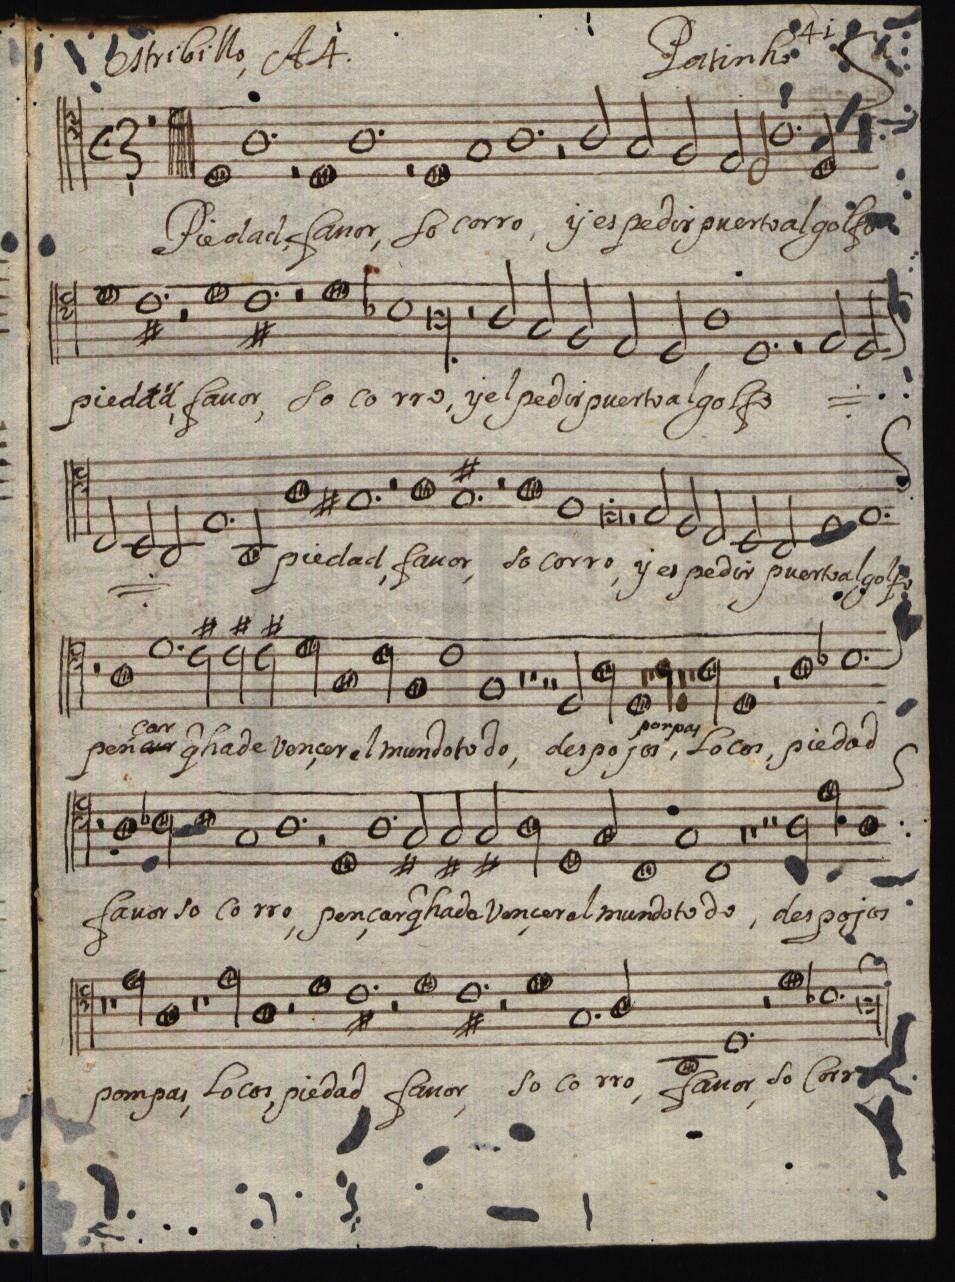 Estribillo, A4. Patinho 41
Piedad, fauor, so corro, y es pedir puerto al golfo
piedad, fauor, so co rro, y el pedir puerto al golfo
piedad, fauor, so corro, y es pedir puerto al golfo
car
pen q̃ hade vençer el mundo todo, despojos, Locos, piedad
fauor so co rro, pençar q̃ hade vençer el mundo todo, despojos
pompas, Locos, piedad fauor, so co rro, fauor, so Corr